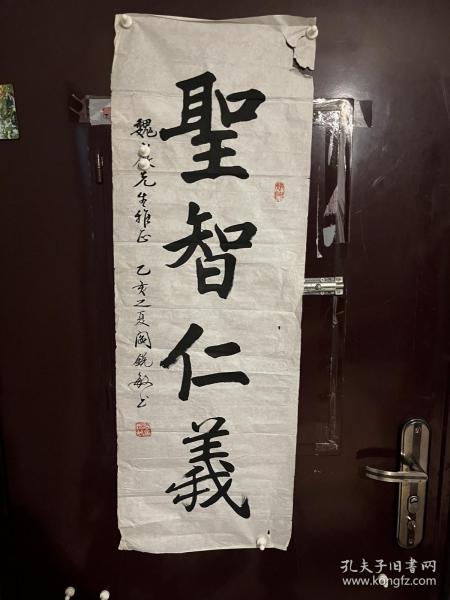 聖智仁義
魏 先生雅正 乙亥之夏 閻銳敏书
孔夫子旧书网
www.kongfz.com